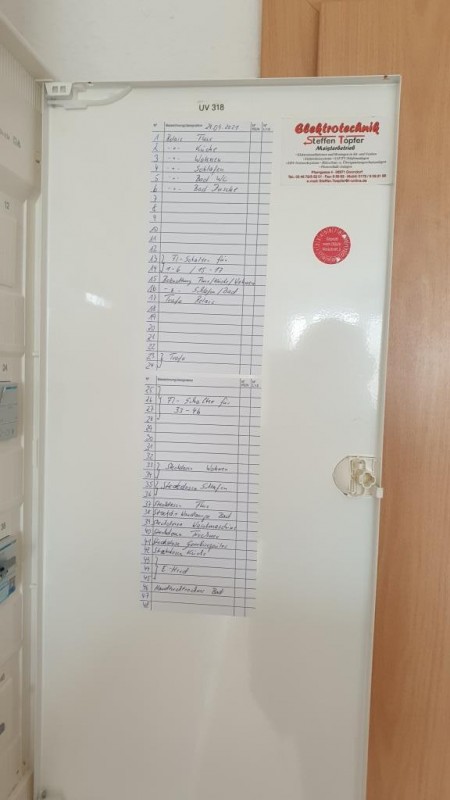 UV 318
29.07.2021
1 Relais Flur
2 -"- Küche
3 -"- Wohnen
4 -"- Schlafen
5 -"- Bad WC
6 -"- Bad Dusche
7
8
9
10
11
12
13 } FI-Schalter für
14 } 1-6 / 15-17
15 Beleuchtung Flur/Küche/Wohnen
16 -"- Schlafen/Bad
17 Trafo Relais
18
19
20
21
22
23 } Trafo
24
25
26 FI-Schalter für
27 33-46
28
29
30
31
32
33 } Steckdosen Wohnen
34
35 } Steckdosen Schlafen
36
37 Steckdosen Flur
38 Bad
39 Steckdose Waschmaschine
40 Steckdose Trockner
41 Steckdose Geschirrspüler
42 Steckdosen Küche
43
44 E-Herd
45
46 Handtuchtrockner Bad
47
48
Elektrotechnik
Steffen Töpfer
Meisterbetrieb